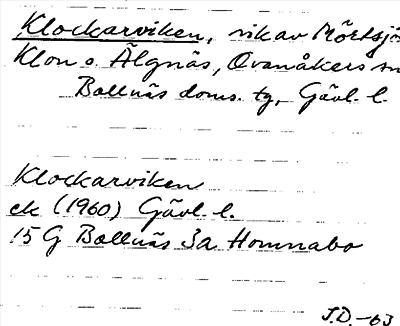 Klockarviken, vik av Mörtsjö
Klon o. Älgnäs, Ovanåkers sn
Bollnäs doms. tg, Gävl. l.
Klockarviken
ek (1960) Gävl. l.
15 G Bollnäs 3a Homnabo
J.D.-63